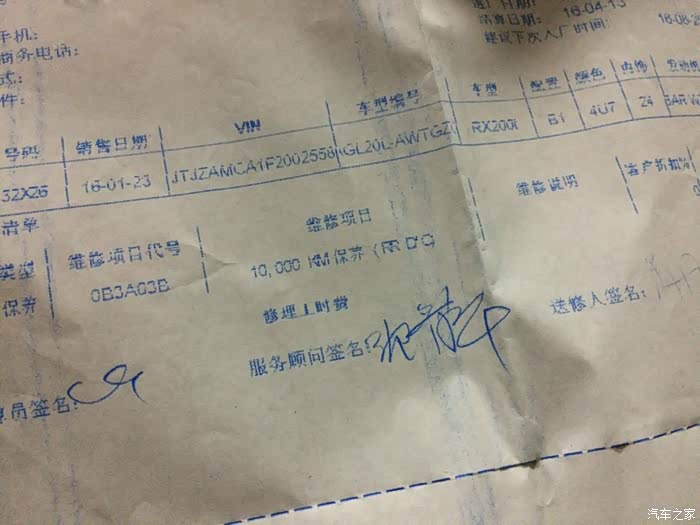 手机:
商务电话:
式:
件:
结算日期: 16-04-13
建议下次入厂时间: 16-08-2
号码 销售日期 VIN 车型编号 车型 配置 颜色 内饰
32X26 16-01-23 JTJZAMCA1F2002558 GL20L-AWTGZ RX200t 61 4U7 24
清单
类型 维修项目代号 维修项目 维修说明 客户折扣%
保养 0B3A03B 10,000 KM保养 (RR D/C)
修理工时费
员签名: 服务顾问签名: 送修人签名:
汽车之家